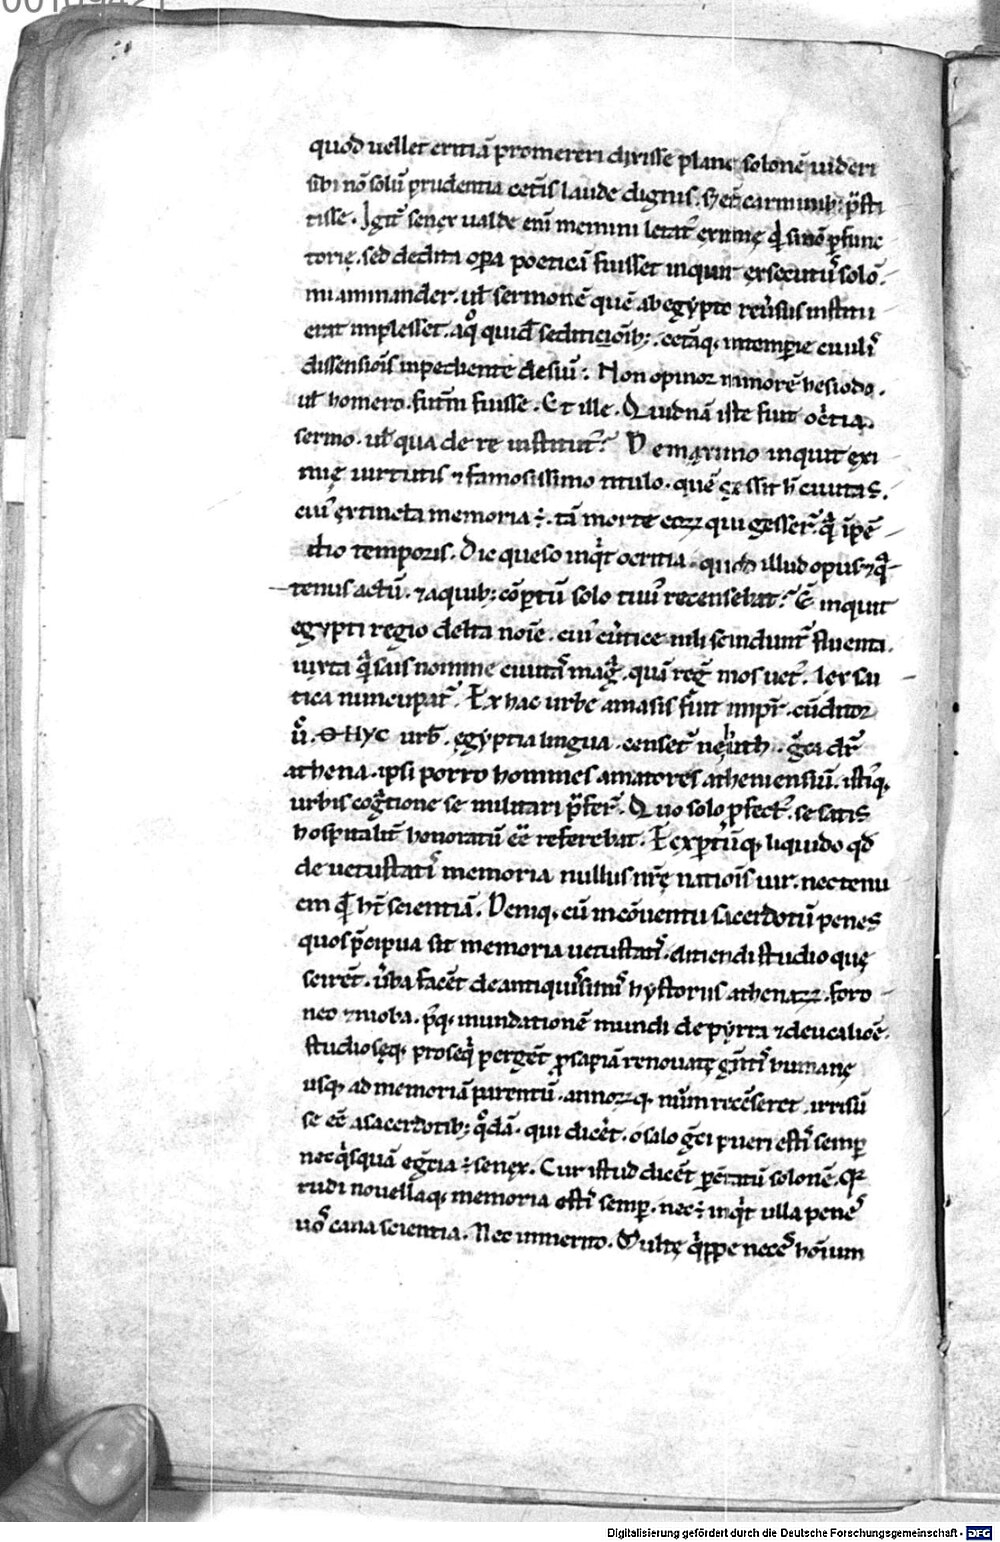 quod uellet critiā promereri dixisse plane solonē uideri
sibi nō solū prudentia cet̄is laude dignus. s; et̄ carminib; p̄sti
tisse. Igit᷑ senex ualde eni᷑ memini letat᷑ eximie q̇ si nō p̲func
torię. sed dedita op̲a poeticā fuisset inquit exsecutus solo᷑
mi aminander. ul̄ sermonē quē ab egypto reu̓sus institu
erat implesset. a q° quid̄ sedicioib; cet̄aq; intemperie ciuilis
dissensiois inpediente desiuit: Non opinor minorē hesiodo.
ul̄ homero. futur̄ fuisse. Et ille. Quidnā iste fuit o c̓tia.
sermo. ul̄ qua de re institut᷑? De maximo inquit exi
mię uirtutis ⁊ famosissimo titulo. quē gessit h̄ ciuitas.
cui᷑ extincta memoria ÷. tā morte eoꝝ qui gesser̄ q̄ īpē
dio temporis. Dic queso inq̇t o critia. quod illud opus ⁊ q̄
tenus actū. ⁊ a quib; cōp̲tū solo tuus recensebat? Ē inquit
egypti regio delta noīe. cui᷑ u̓tice nili scindunt᷑ fluenta.
iuxta q̄ sais nomine ciuitas mag̅. quā reg̅ mos uet᷑. lex sa
tica nuncupat᷑. Ex hac urbe amasis fuit imp̲r. cōditor
ū. ΘΗΥC urb᷑. egyptia lingua. censet᷑ neuth. g̅ca dr̄
athena. ipsi porro homines amatores atheniensiū. istiq;
urbis cog̅tione se militari p̄fer̄. Quo solo p̲fect᷑. se satis
hospitalit᷑ honoratū eē referebat. Exp̲tūq; liquido qd̄
de uetustatis memoria nullus nr̄ę natiois uir. nec tenu
em q̇ h̄t scientiā. Deniq; cū in cōuentu sacerdotū penes
quos p̄cipua sit memoria uetustatis. eliciendi studio que
sciret. u̓ba facēt de antiquissimis hystoriis athenaꝝ. foro
neo ⁊ nioba. p̄q; inundationē mundi de pyrra ⁊ deucaliōe.
studioseq; proseq̇ pergēt p̲sapiā renouatę gn̄tis humanę
usq; ad memoriā parentū. annoꝝq; num̄ recēseret. irrisū
se eē a sacerdotib; q°dā. qui dic̓et. o salo g̅ci pueri estis semp̲
nec q̇squā eg̅cia ÷ senex. Cur istud dicet p̲cōtatū solonē. Q̄
rudi nouellaq; memoria estis semp̲. nec ÷ inq̇t ulla penes
uos cana scientia. Nec inmerito. Multę q̇ppe neces hoīum